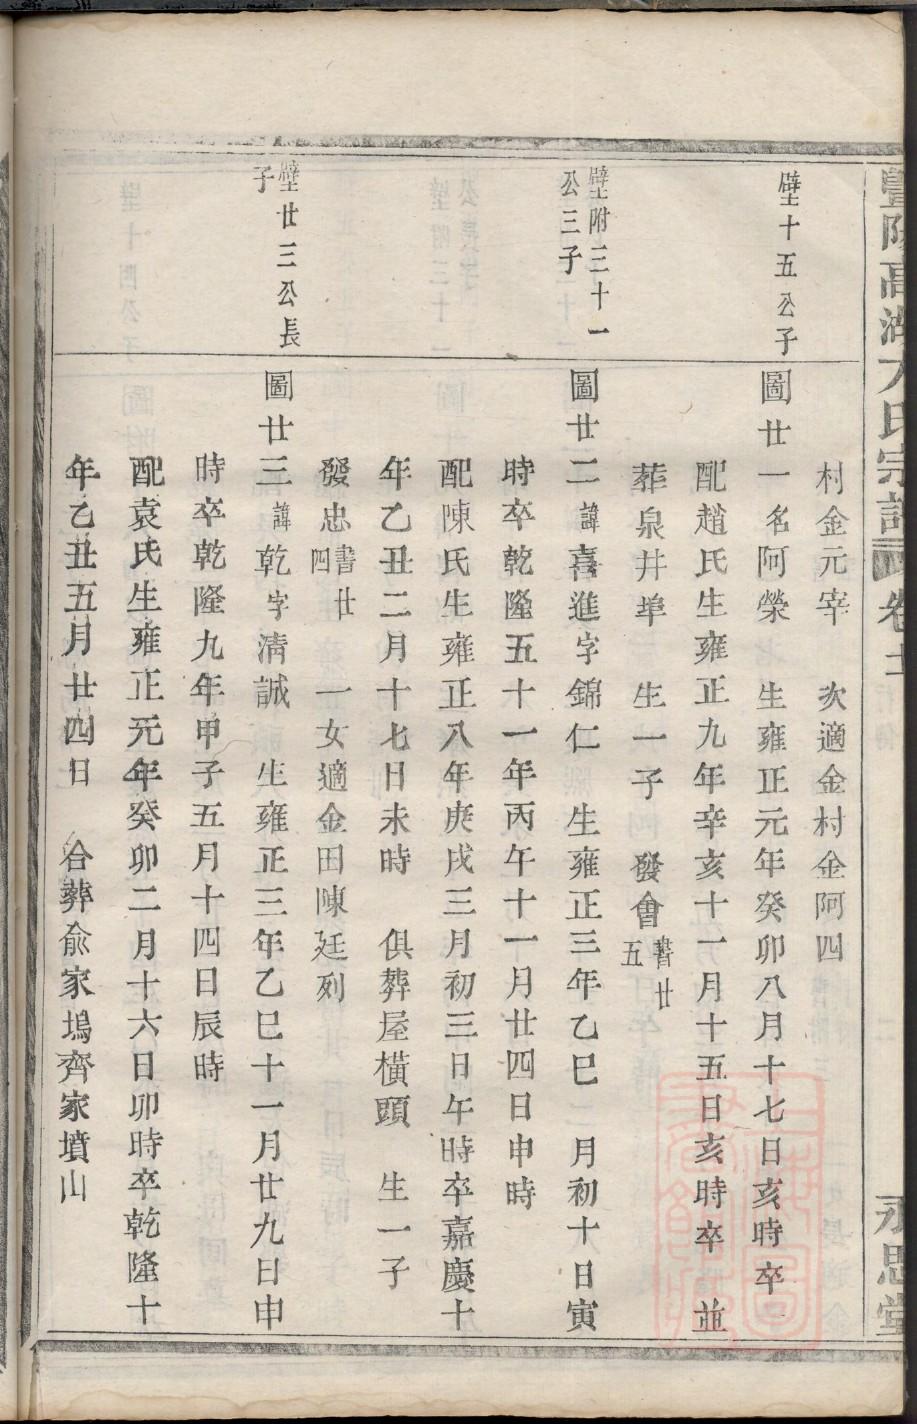 暨陽高湖方氏宗譜 卷十二
永思堂
村金元宰 次適金村金阿四
璧十五公子
圖廿一名阿榮 生雍正元年癸卯八月十七日亥時卒
配趙氏生雍正九年辛亥十一月十五日亥時卒 並
葬泉井埠 生一子 發會書廿五
璧附三十一公三子
圖廿二諱喜進字錦仁 生雍正三年乙巳 月初十日寅
時卒乾隆五十一年丙午十一月廿四日申時
配陳氏生雍正八年庚戌三月初三日午時卒嘉慶十
年乙丑二月十七日未時 俱葬屋橫頭 生一子
發忠書廿四 一女適金田陳廷列
璧廿三公長子
圖廿三諱乾字淸誠 生雍正三年乙巳十一月廿九日申
時卒乾隆九年甲子五月十四日辰時
配袁氏生雍正元年癸卯二月十六日卯時卒乾隆十
年乙丑五月廿四日 合葬俞家塢齊家墳山